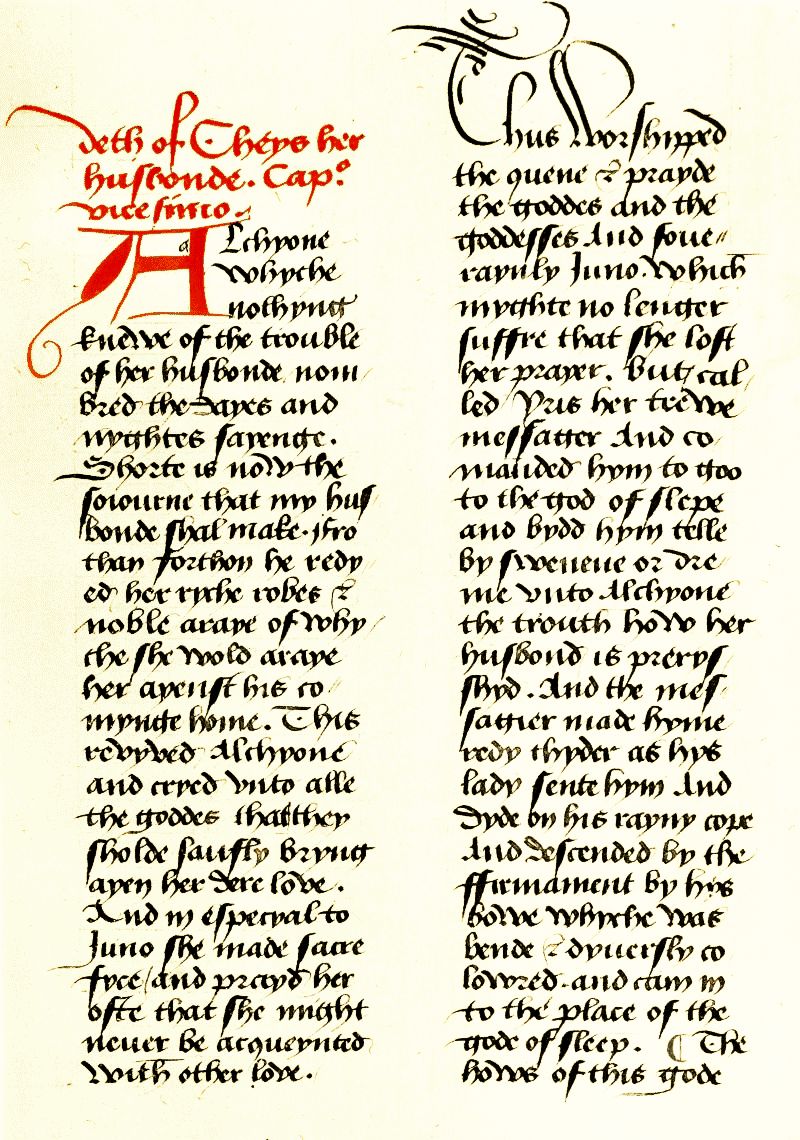 deth of Cheys her
husbonde. Cap.º
vicesimo.
a
Alchyone
whyche
nothyng
knewe of the trouble
of her husbonde nom-
bred the dayes and
nyghtes sayenge.
Shorte is now the
soiourne that my hus
bonde shal make. ffro
than forthon he redy-
ed her ryche robes &
noble araye of why-
che she wold araye
her ayenst his co-
mynge home. This
revyved Alchyone
and cryed vnto alle
the goddes that they
sholde saufly bryng
ayen her dere love.
And in especyal to
Juno she made sacre
fyce / and prayd her
ofte that she might
neuer be acqueynted
with other love.
Thus Worshipped
the quene & prayde
the goddes and the
goddesses And soue-
raynly Juno. Which
myghte no lenger
suffre that she lost
her prayer. But cal-
led Yris her trewe
messager And co-
mauded hym to goo
to the god of slepe
and bydd hym telle
by sweuene or dre-
me vnto Alchyone
the trouth how her
husbond is perys-
shyd. And the mes-
sagier made hyme
redy thyder as hys
lady sente hym And
dyde on his rayny cope
And descended by the
ffirmament by hys
bowe whyche was
bende & dyuersly co
lowred. and cam in
to the place of the
gode of sleep. ¶ The
hows of this gode